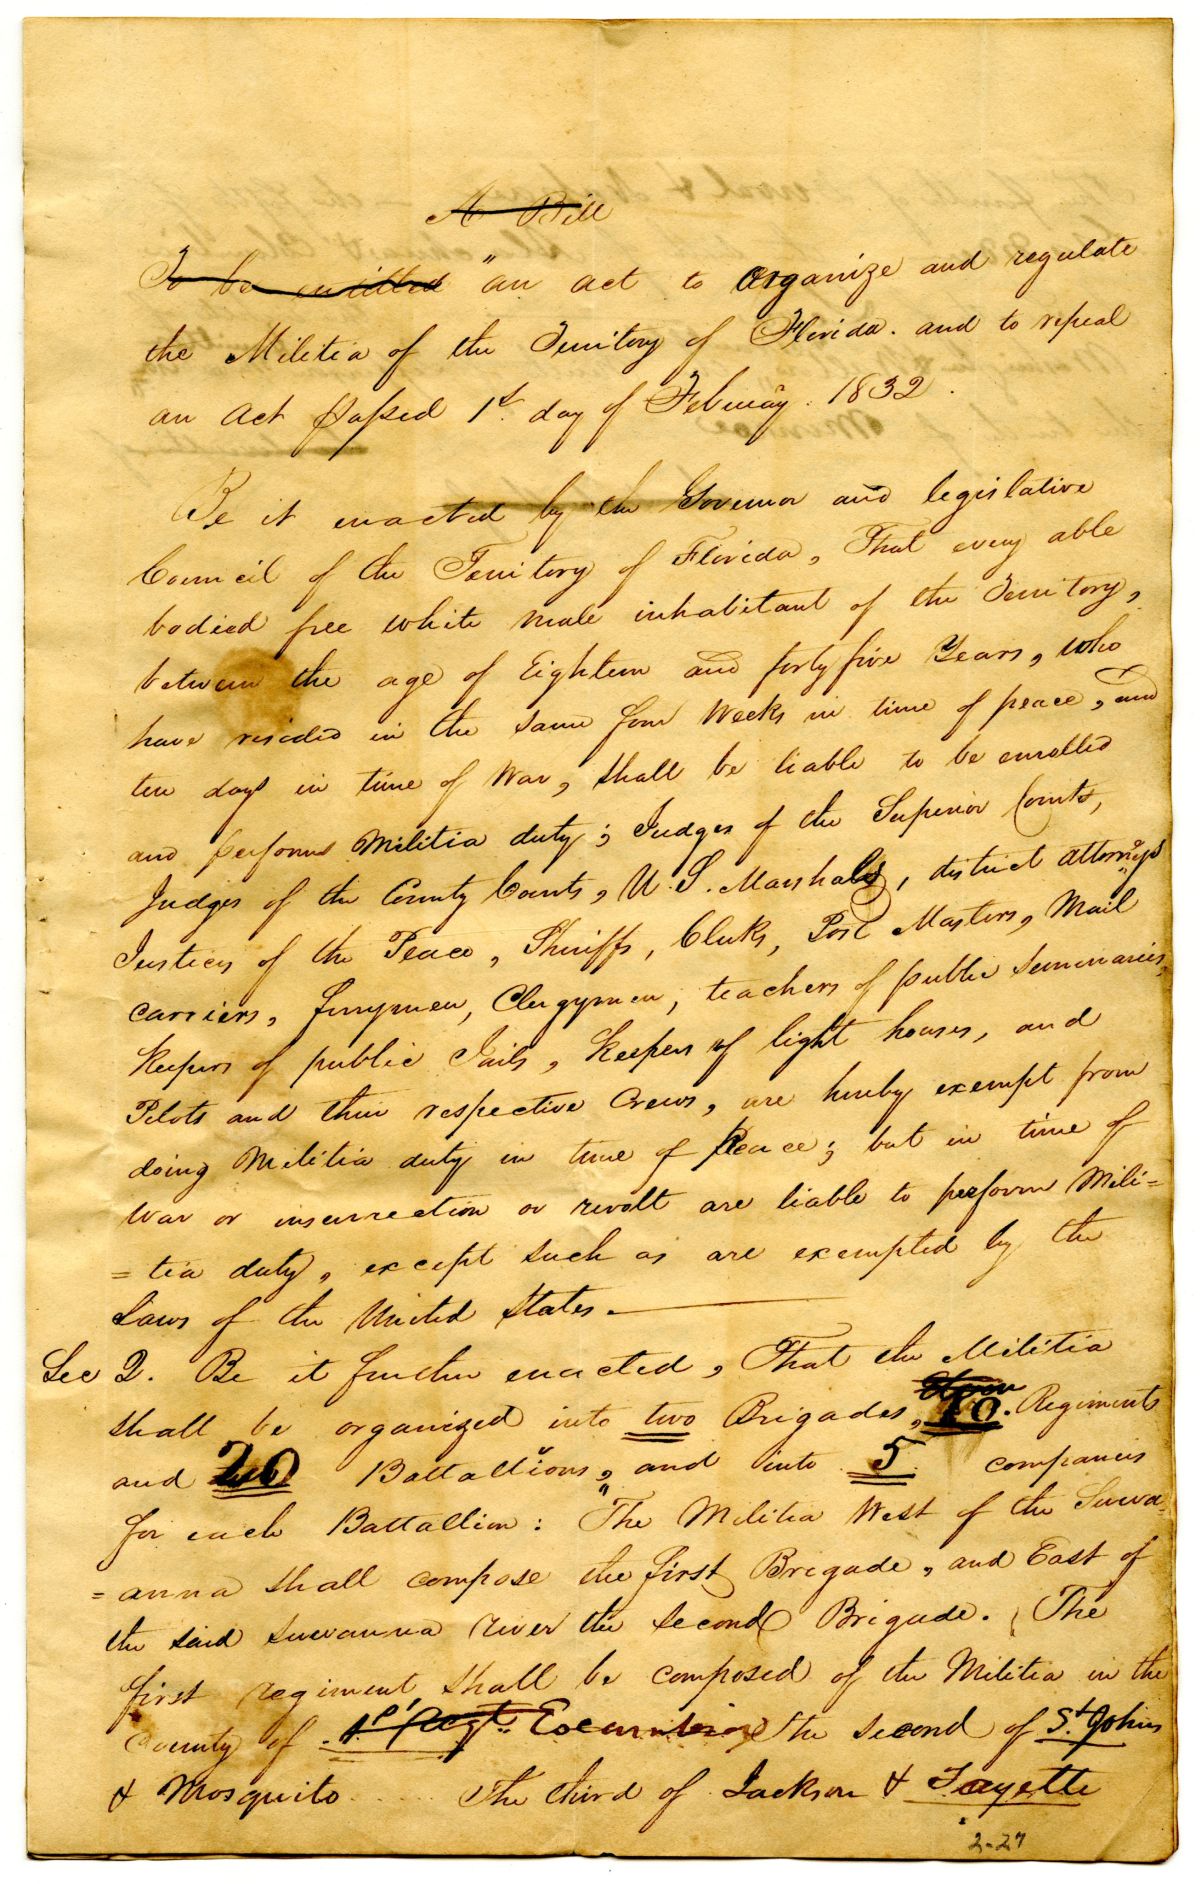 A Bill
To be entitled "an act to organize and regulate
the Militia of the Territory of Florida. and to repeal
an act passed 1st. day of February. 1832.
Be it enacted by the Governor and legislative
Council of the Territory of Florida, That every able
bodied free white male inhabitant of the Territory,
between the age of Eighteen and forty five Years, who
have resided in the same four Weeks in time of peace, and
ten days in time of War, shall be liable to be enrolled
and perform Militia duty; Judges of the Superior Courts,
Judges of the County Courts, U. S. Marshals, district attorneys
Justices of the Peace, Sheriffs, Clerks, Post Masters, Mail
carriers, ferrymen, Clergymen, teachers of public seminaries,
Keepers of public Jails, Keepers of light houses, and
Pilots and their respective Crews, are hereby exempt from
doing Militia duty in time of Peace; but in time of
War or insurrection or revolt are liable to perform Mili=
=tia duty, except such as are exempted by the
Laws of the United States.
Sec 2. Be it further enacted, That the Militia
shall be organized into two Brigades, 10. Regiments
and 20 Battallions, and into 5 companies
for each Battallion: "The Militia West of the Suwa=
=anna shall compose the first Brigade, and East of
the said suwanna river the second Brigade. The
first regiment shall be composed of the Militia in the
County of 1st Regt. Escambia The second of St. Johns
& Mosquito .... The third of Jackson & Fayette
2-27